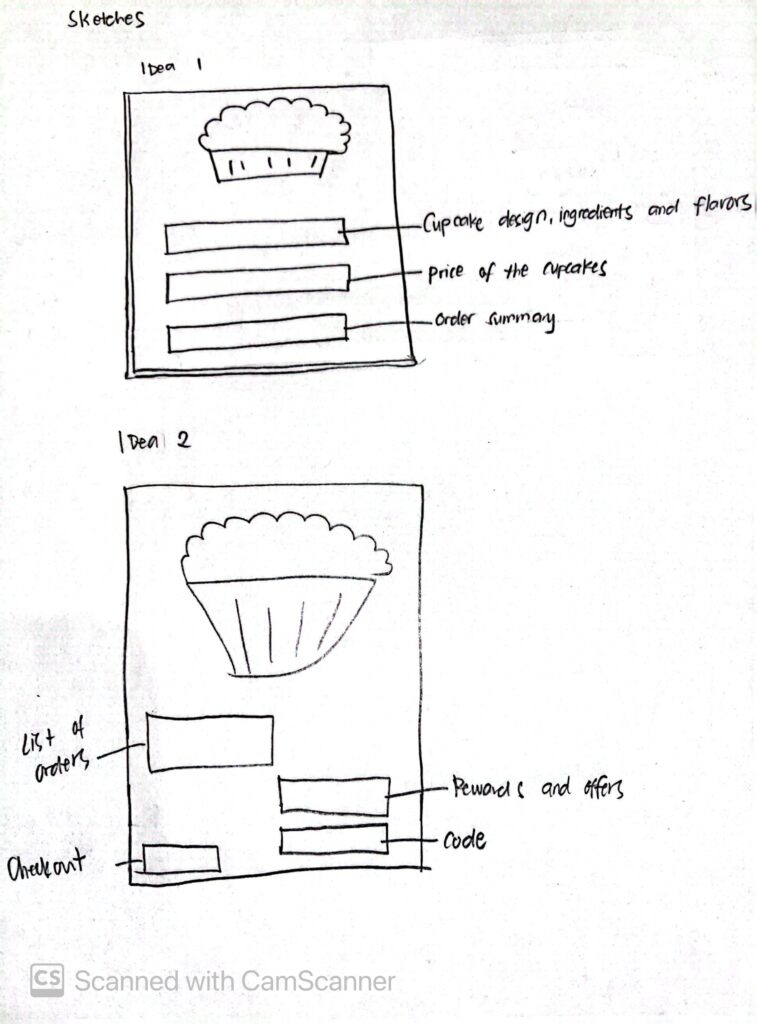 Sketches
Idea 1
Cupcake design, ingredients and flavors
Price of the cupcakes
Order summary
Idea 2
List of
orders
Rewards and offers
Code
Checkout
CS Scanned with CamScanner